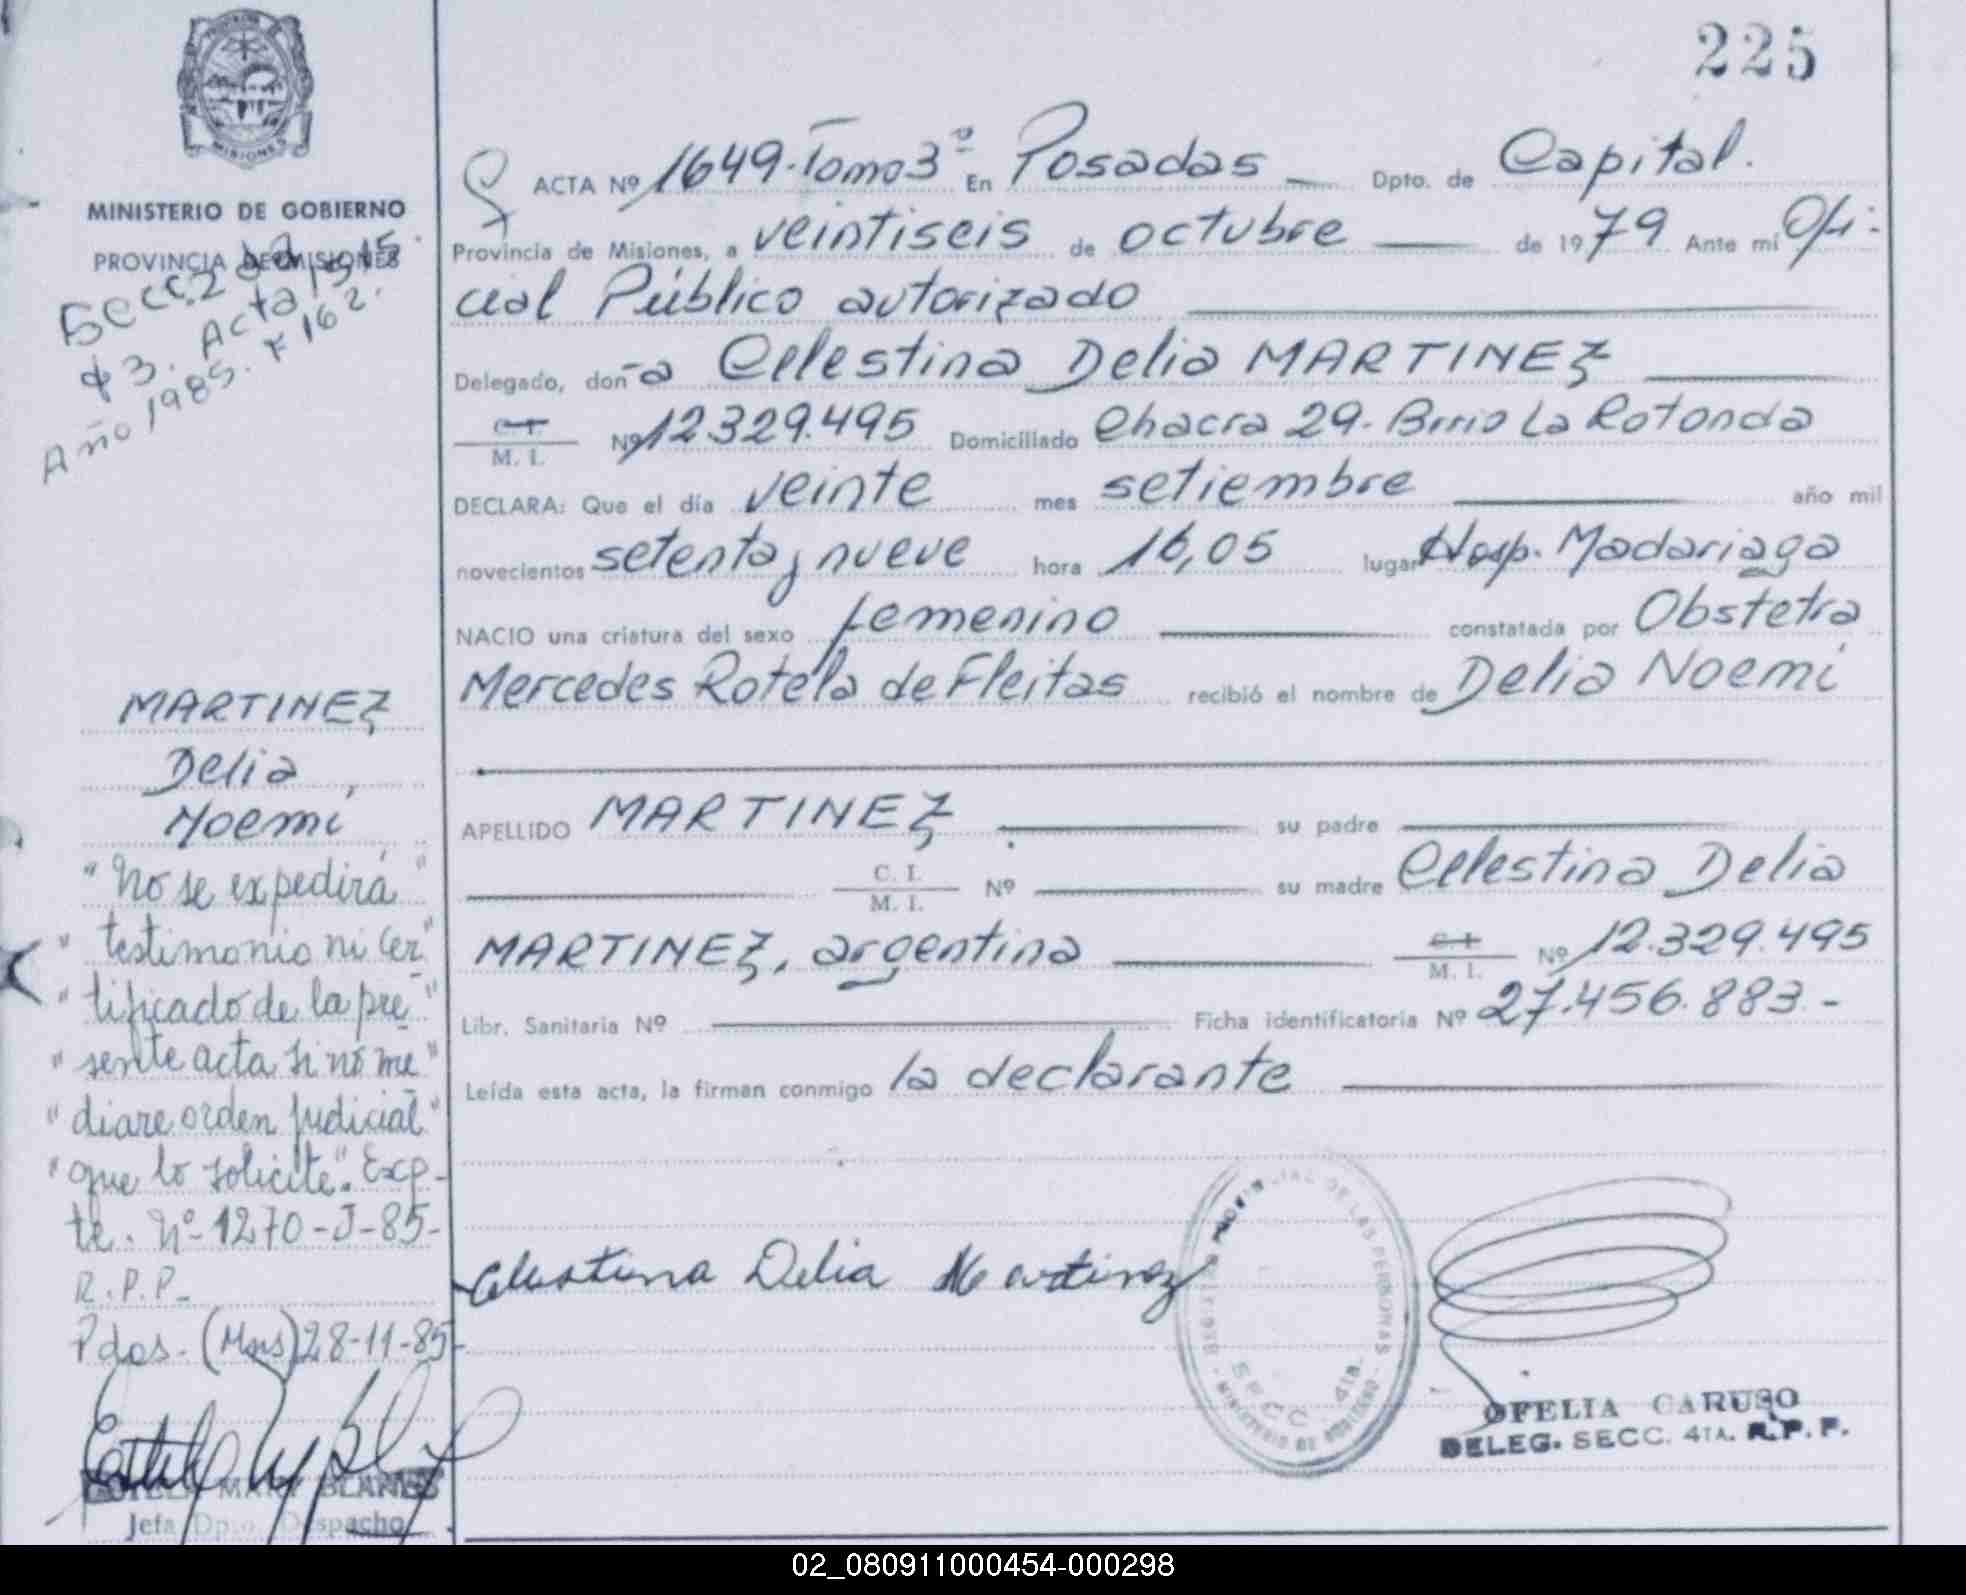 225
MISIONES
MINISTERIO DE GOBIERNO
PROVINCIA DE MISIONES
Secc. 2
Acta 1515.
Año 1985. F 162.
MARTINEZ
Delia
Noemí
"No se expedirá"
"testimonio ni cer"
"tificado de la pre"
"sente acta si no me"
"diare orden judicial"
"que lo solicite". Exp-
te. Nº 1270-J-85-
R.P.P.-
Pdas. (Mns) 28-11-85-
MARY BLANES
Jefa Dpto. Despacho
ACTA Nº 1649-Tomo 3º En Posadas Dpto. de Capital.
Provincia de Misiones, a veintiseis de octubre de 1979 Ante mí Ofi-
cial Público autorizado
Delegado, don-a Celestina Delia MARTINEZ
C. I.
M. I. Nº 12.329.495 Domiciliado Chacra 29- Brrio La Rotonda
DECLARA: Que el día veinte mes setiembre año mil
novecientos setenta y nueve hora 16,05 lugar Hosp. Madariaga
NACIO una criatura del sexo femenino constatada por Obstetra
Mercedes Rotela de Fleitas recibió el nombre de Delia Noemí
APELLIDO MARTINEZ su padre
C. I.
M. I. Nº su madre Celestina Delia
MARTINEZ, argentina C. I.
M. I. Nº 12.329.495
Libr. Sanitaria Nº Ficha identificatoria Nº 27.456.883.-
Leída esta acta, la firman conmigo la declarante
Celestina Delia Martinez
REGISTRO PROVINCIAL DE LAS PERSONAS
SECC. 4ta.
MINISTERIO DE GOBIERNO
OFELIA CARUSO
DELEG. SECC. 4TA. R.P.P.
02_080911000454-000298